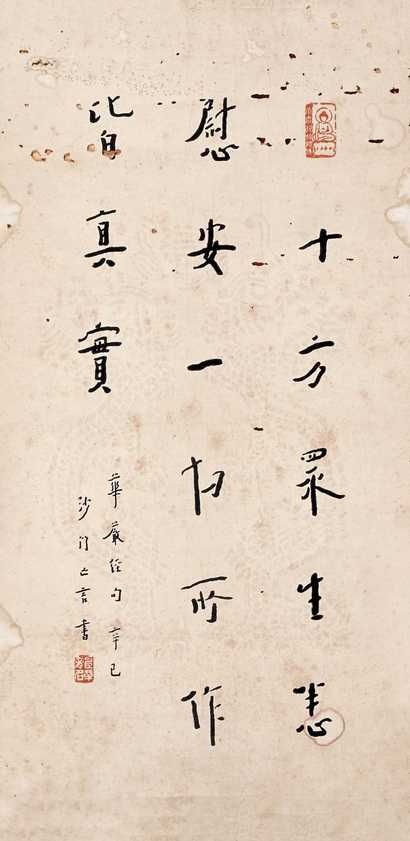 十方眾生悉
慰安一切所作
皆真實
華嚴經句 辛巳
沙門亡言書